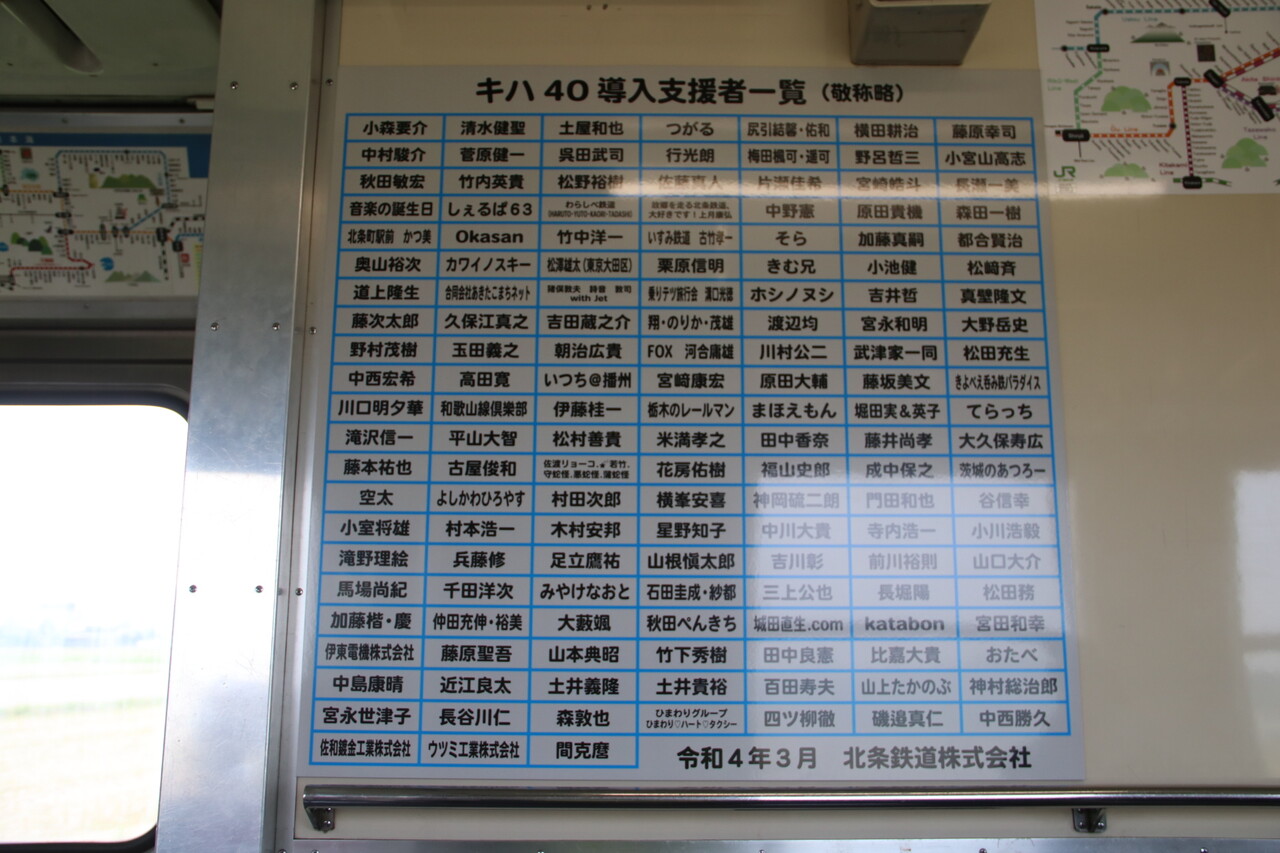 キハ40導入支援者一覧（敬称略）
小森要介 清水健聖 土屋和也 つがる 尻引結馨・佑和 横田耕治 藤原幸司
中村駿介 菅原健一 呉田武司 行光朗 梅田楓可・遥可 野呂哲三 小宮山高志
秋田敏宏 竹内英貴 松野裕樹 佐藤真人 片瀬佳希 宮崎皓斗 長瀬一美
音楽の誕生日 しぇるぱ63 わらしべ鉄道 故郷を走る北条鉄道、 中野憲 原田貴機 森田一樹
(HARUTO・YUTO・KAORI・TADASHI) 大好きです！上月康弘
北条町駅前 かつ美 Okasan 竹中洋一 いすみ鉄道 古竹孝一 そら 加藤真嗣 都合賢治
奥山裕次 カワイノスキー 松澤雄太（東京大田区） 栗原信明 きむ兄 小池健 松﨑斉
道上隆生 合同会社あきたこまちネット with Jet 乗りテツ旅行会 溝口光徳 ホシノヌシ 吉井哲 真壁隆文
藤次太郎 久保江真之 吉田蔵之介 翔・のりか・茂雄 渡辺均 宮永和明 大野岳史
野村茂樹 玉田義之 朝治広貴 FOX 河合庸雄 川村公二 武津家一同 松田充生
中西宏希 高田寛 いつち@播州 宮﨑康宏 原田大輔 藤坂美文 きよべえ呑み鉄パラダイス
川口明夕華 和歌山線倶楽部 伊藤桂一 栃木のレールマン まほえもん 堀田実&英子 てらっち
滝沢信一 平山大智 松村善貴 米満孝之 田中香奈 藤井尚孝 大久保寿広
藤本祐也 古屋俊和 佐渡リョーコ. 若竹. 花房佑樹 福山史郎 成中保之 茨城のあつろー
空太 よしかわひろやす 村田次郎 横峯安喜 神岡硫二朗 門田和也 谷信幸
小室将雄 村本浩一 木村安邦 星野知子 中川大貴 寺内浩一 小川浩毅
滝野理絵 兵藤修 足立鷹祐 山根愼太郎 吉川彰 前川裕則 山口大介
馬場尚紀 千田洋次 みやけなおと 石田圭成・紗都 三上公也 長堀陽 松田務
加藤楷・慶 仲田充伸・裕美 大藪颯 秋田ぺんきち 城田直生.com katabon 宮田和幸
伊東電機株式会社 藤原聖吾 山本典昭 竹下秀樹 田中良憲 比嘉大貴 おたべ
中島康晴 近江良太 土井義隆 土井貴裕 百田寿夫 山上たかのぶ 神村総治郎
宮永世津子 長谷川仁 森敦也 ひまわりグループ 四ツ柳徹 磯邉真仁 中西勝久
ひまわり♡ハート♡タクシー
佐和鍍金工業株式会社 ウツミ工業株式会社 間克麿
令和4年3月 北条鉄道株式会社
JR